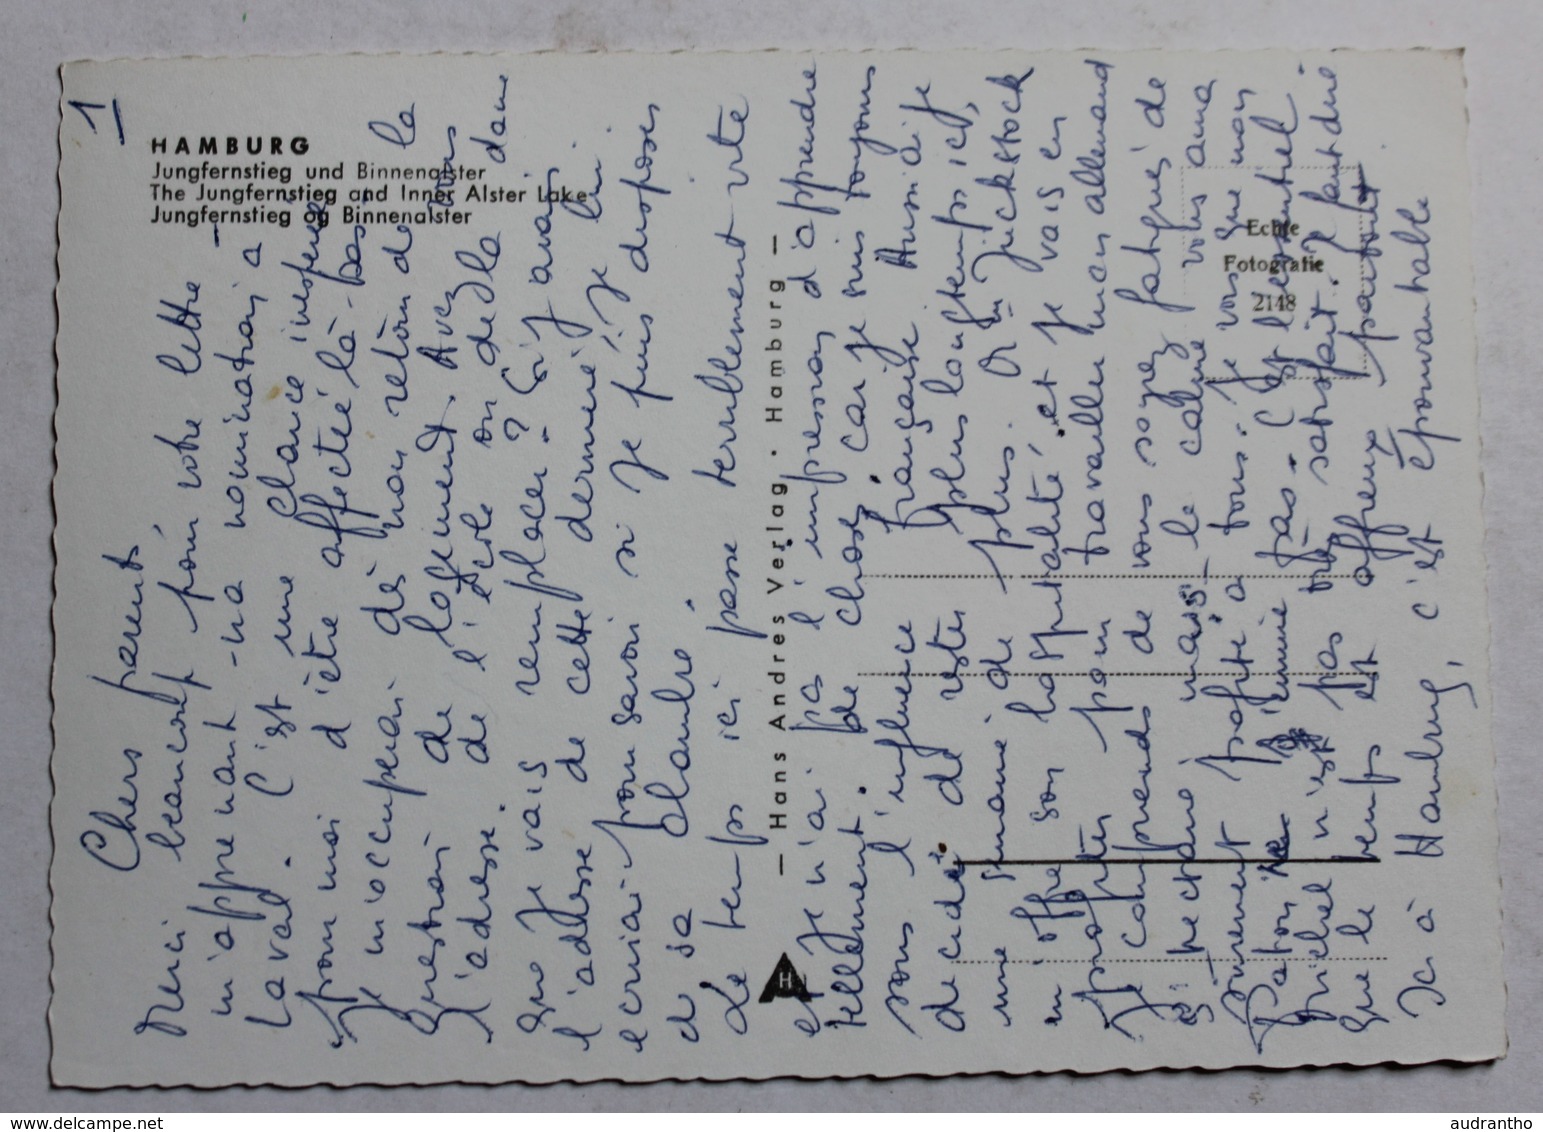 1
HAMBURG
Jungfernstieg und Binnenalster
The Jungfernstieg and Inner Alster Lake
Jungfernstieg og Binnenalster
Chers parents
Merci beaucoup pour votre lettre
m'apprenant ma nomination à
Laval. C'est une chance inespérée
pour moi d'être affectée là-bas.
Je m'occuperai dès mon retour de la
question de logement. Avez vous
l'adresse de l'école ou de la dame
que je vais remplacer? Si j'avais
l'adresse de cette dernière je lui
écrirai pour savoir si je puis disposer
de sa chambre.
Le temps ici passe terriblement vite
et je n'ai pas l'impression d'apprendre
tellement de choses car je suis toujours
sous l'influence française. Aussi ai-je
décidé de rester plus longtemps ici,
une semaine de plus. Jückstock
m'offre son hospitalité et je vais en
profiter pour travailler mon allemand
Je comprends de vous soyez fatigués de
mais le calme vous aura
sûrement profité à tous. Je vois que mon
ne s'ennuie pas. C'est l'essentiel.
Michel n'est pas très satisfait. Il faut dire
que le temps est affreux partout
Ici à Hamburg, c'est épouvantable
— Hans Andres Verlag · Hamburg —
H
Echte
Fotografie
2148
audrantho